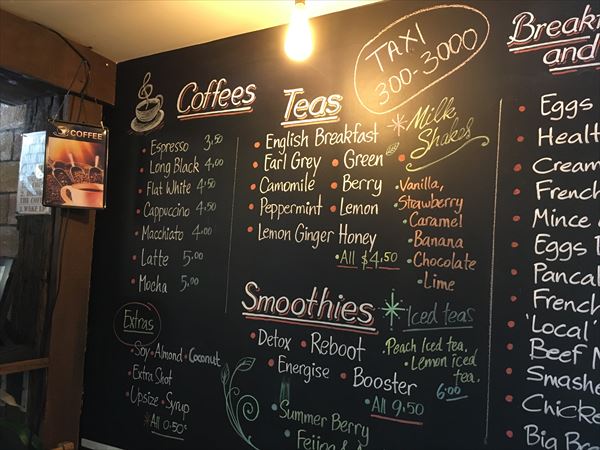 COFFEE
Coffees
Espresso 3.50
Long Black 4.00
Flat White 4.50
Cappuccino 4.50
Macchiato 4.00
Latte 5.00
Mocha 5.00
Extras
Soy • Almond • Coconut
Extra Shot
Upsize • Syrup
*All 0.50c
Teas
English Breakfast
Earl Grey • Green
Camomile • Berry
Peppermint • Lemon
Lemon Ginger Honey
• All $4.50
TAXI
300-3000
Milk
Shakes
Vanilla,
Strawberry
Caramel
Banana
Chocolate
Lime
Smoothies
Detox • Reboot
Energise • Booster
• All 9.50
Summer Berry
Feijoa &
Iced teas
Peach Iced tea.
Lemon iced
tea.
6.00
Breakf
and
Eggs
Healt
Cream
French
Mince
Eggs
Panca
French
'Local'
Beef
Smashe
Chicke
Big Bre